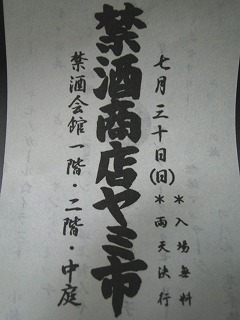 七月三十日(日)
＊入場無料
＊雨天決行
禁酒商店ヤミ市
禁酒会館一階・二階・中庭